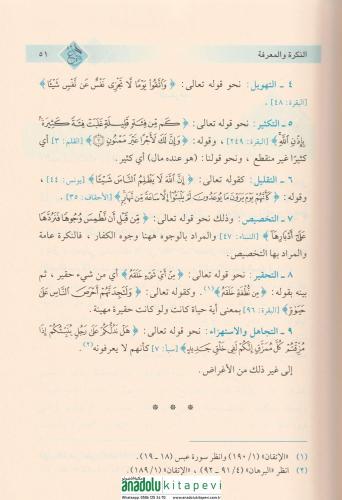 النكرة والمعرفة
٥١
٤ ـ التهويل: نحو قوله تعالى: ﴿ وَاتَّقُوا يَوْمًا لَّا تَجْزِي نَفْسٌ عَن نَّفْسٍ شَيْئًا ﴾
[البقرة: ٤٨] .
٥ ـ التكثير: نحو قوله تعالى: ﴿ كَم مِّن فِئَةٍ قَلِيلَةٍ غَلَبَتْ فِئَةً كَثِيرَةً
بِإِذْنِ اللَّهِ ﴾ [البقرة: ٢٤٩] ، وقوله: ﴿ وَإِنَّ لَكَ لَأَجْرًا غَيْرَ مَمْنُونٍ ﴾ [القلم: ٣] أي
كثيرًا غير منقطع ، ونحو قولنا: (هو عنده مال) أي كثير.
٦ ـ التقليل: كقوله تعالى: ﴿ إِنَّ اللَّهَ لَا يَظْلِمُ النَّاسَ شَيْئًا ﴾ [يونس: ٤٤] ،
وقوله: ﴿ كَأَنَّهُمْ يَوْمَ يَرَوْنَ مَا يُوعَدُونَ لَمْ يَلْبَثُوا إِلَّا سَاعَةً مِّن نَّهَارٍ ﴾ [الأحقاف: ٣٥] .
٧ ـ التخصيص: وذلك نحو قوله تعالى: ﴿ مِّن قَبْلِ أَن نَّطْمِسَ وُجُوهًا فَنَرُدَّهَا
عَلَىٰ أَدْبَارِهَا ﴾ [النساء: ٤٧] والمراد بالوجوه ههنا وجوه الكفار ، فالنكرة عامة
والمراد بها التخصيص.
٨ ـ التحقير: نحو قوله تعالى: ﴿ مِنْ أَيِّ شَيْءٍ خَلَقَهُ ﴾ أي من شيء حقير ، ثم
بينه بقوله: ﴿ مِن نُّطْفَةٍ خَلَقَهُ ﴾(١). وكقوله تعالى: ﴿ وَلَتَجِدَنَّهُمْ أَحْرَصَ النَّاسِ عَلَىٰ
حَيَوٰةٍ ﴾ [البقرة: ٩٦] بمعنى أية حياة كانت ولو كانت حقيرة مهينة.
٩ ـ التجاهل والاستهزاء: نحو قوله تعالى: ﴿ هَلْ نَدُلُّكُمْ عَلَىٰ رَجُلٍ يُنَبِّئُكُمْ إِذَا
مُزِّقْتُمْ كُلَّ مُمَزَّقٍ إِنَّكُمْ لَفِي خَلْقٍ جَدِيدٍ ﴾ [سبأ: ٧] كأنهم لا يعرفونه(٢).
إلى غير ذلك من الأغراض.
* * *
(١) «الإتقان» (١/ ١٩٠) وانظر سورة عبس (١٨ ـ ١٩).
(٢) انظر «البرهان» (٤/ ٩١ ـ ٩٢) ، «الإتقان» (١/ ١٨٩).
anadolukitapevi
www.anadolukitapevi.com